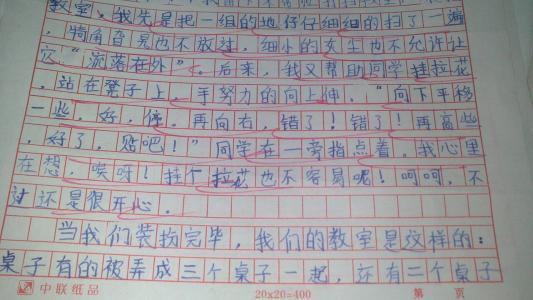 教室，我先是把一组的地仔仔细细的扫了一遍
，犄角旮旯也不放过，细小的灰尘也不允许让
它“流落在外”。后来，我又帮助同学挂拉花
，站在凳子上，手努力的向上伸，“向下平移
一些，好，停，再向右，错了！错了！再高些
，好了，贴吧！”同学在一旁指点着，我心里
在想，唉呀！挂个拉花也不容易呢！呵呵，不
过还是很开心。
当我们装扮完毕，我们的教室是这样的：
桌子有的被弄成三个桌子一起，还有二个桌子
中联纸品 20x20=400 第 页